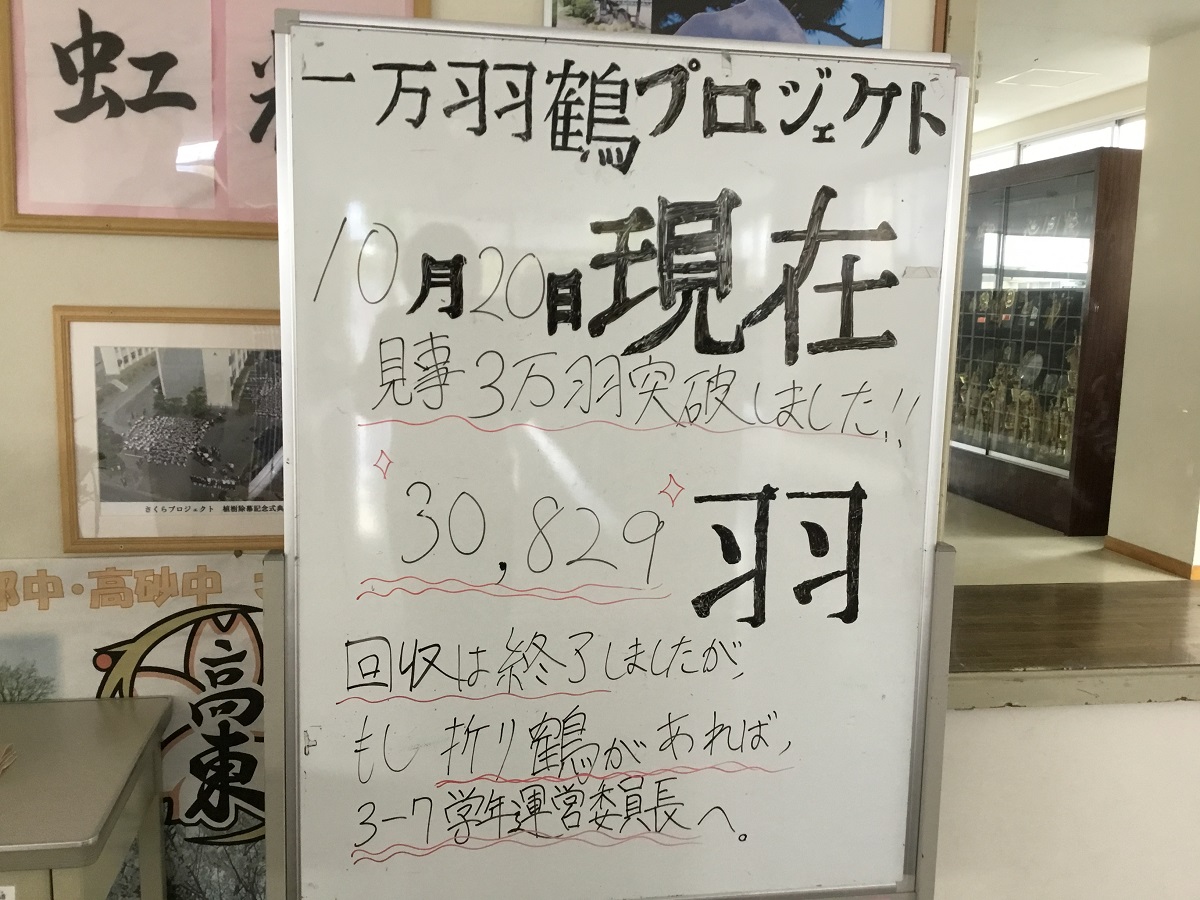 虹
一万羽鶴プロジェクト
10月20日現在
見事3万羽突破しました!!
30,829羽
回収は終了しましたが、
もし折り鶴があれば、
3-7学年運営委員長へ。
さくらプロジェクト 植樹除幕記念式典
中・高砂中
高東